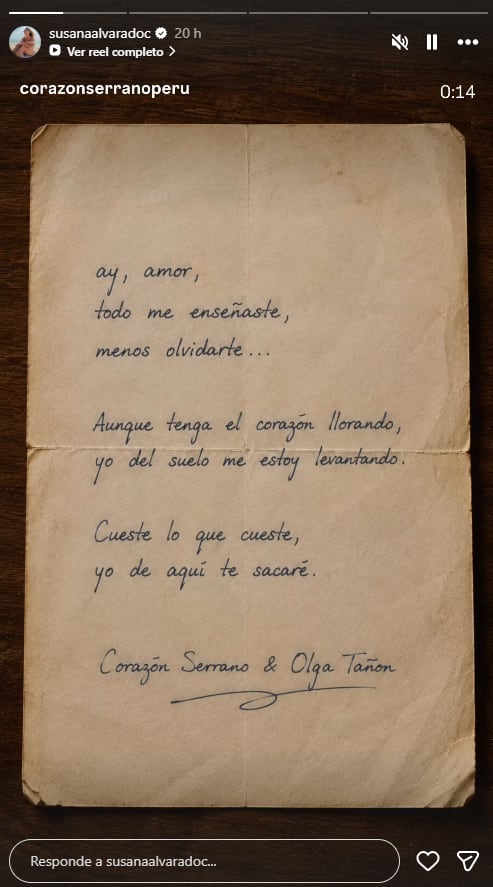 susanaalvaradoc 20 h
Ver reel completo
corazonserranoperu
0:14
ay, amor,
todo me enseñaste,
menos olvidarte...
Aunque tenga el corazón llorando,
yo del suelo me estoy levantando.
Cueste lo que cueste,
yo de aquí te sacaré.
Corazón Serrano & Olga Tañon
Responde a susanaalvaradoc...